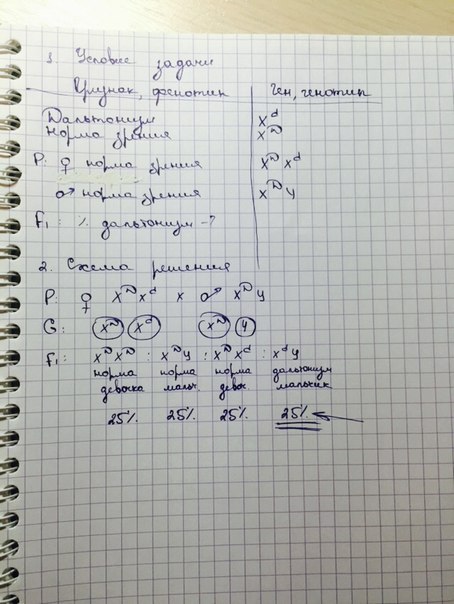 1. Условие задачи
Признак, фенотип | Ген, генотип
Дальтонизм X^d
Норма зрения X^D
P: ♀ норма зрения X^D X^d
♂ норма зрения X^D Y
F₁: % дальтонизм - ?
2. Схема решения
P: ♀ X^D X^d x ♂ X^D Y
G: X^D X^d X^D Y
F₁: X^D X^D : X^D Y : X^D X^d : X^d Y
норма норма норма дальтонизм
девочка мальч. девоч. мальчик
25% 25% 25% 25%